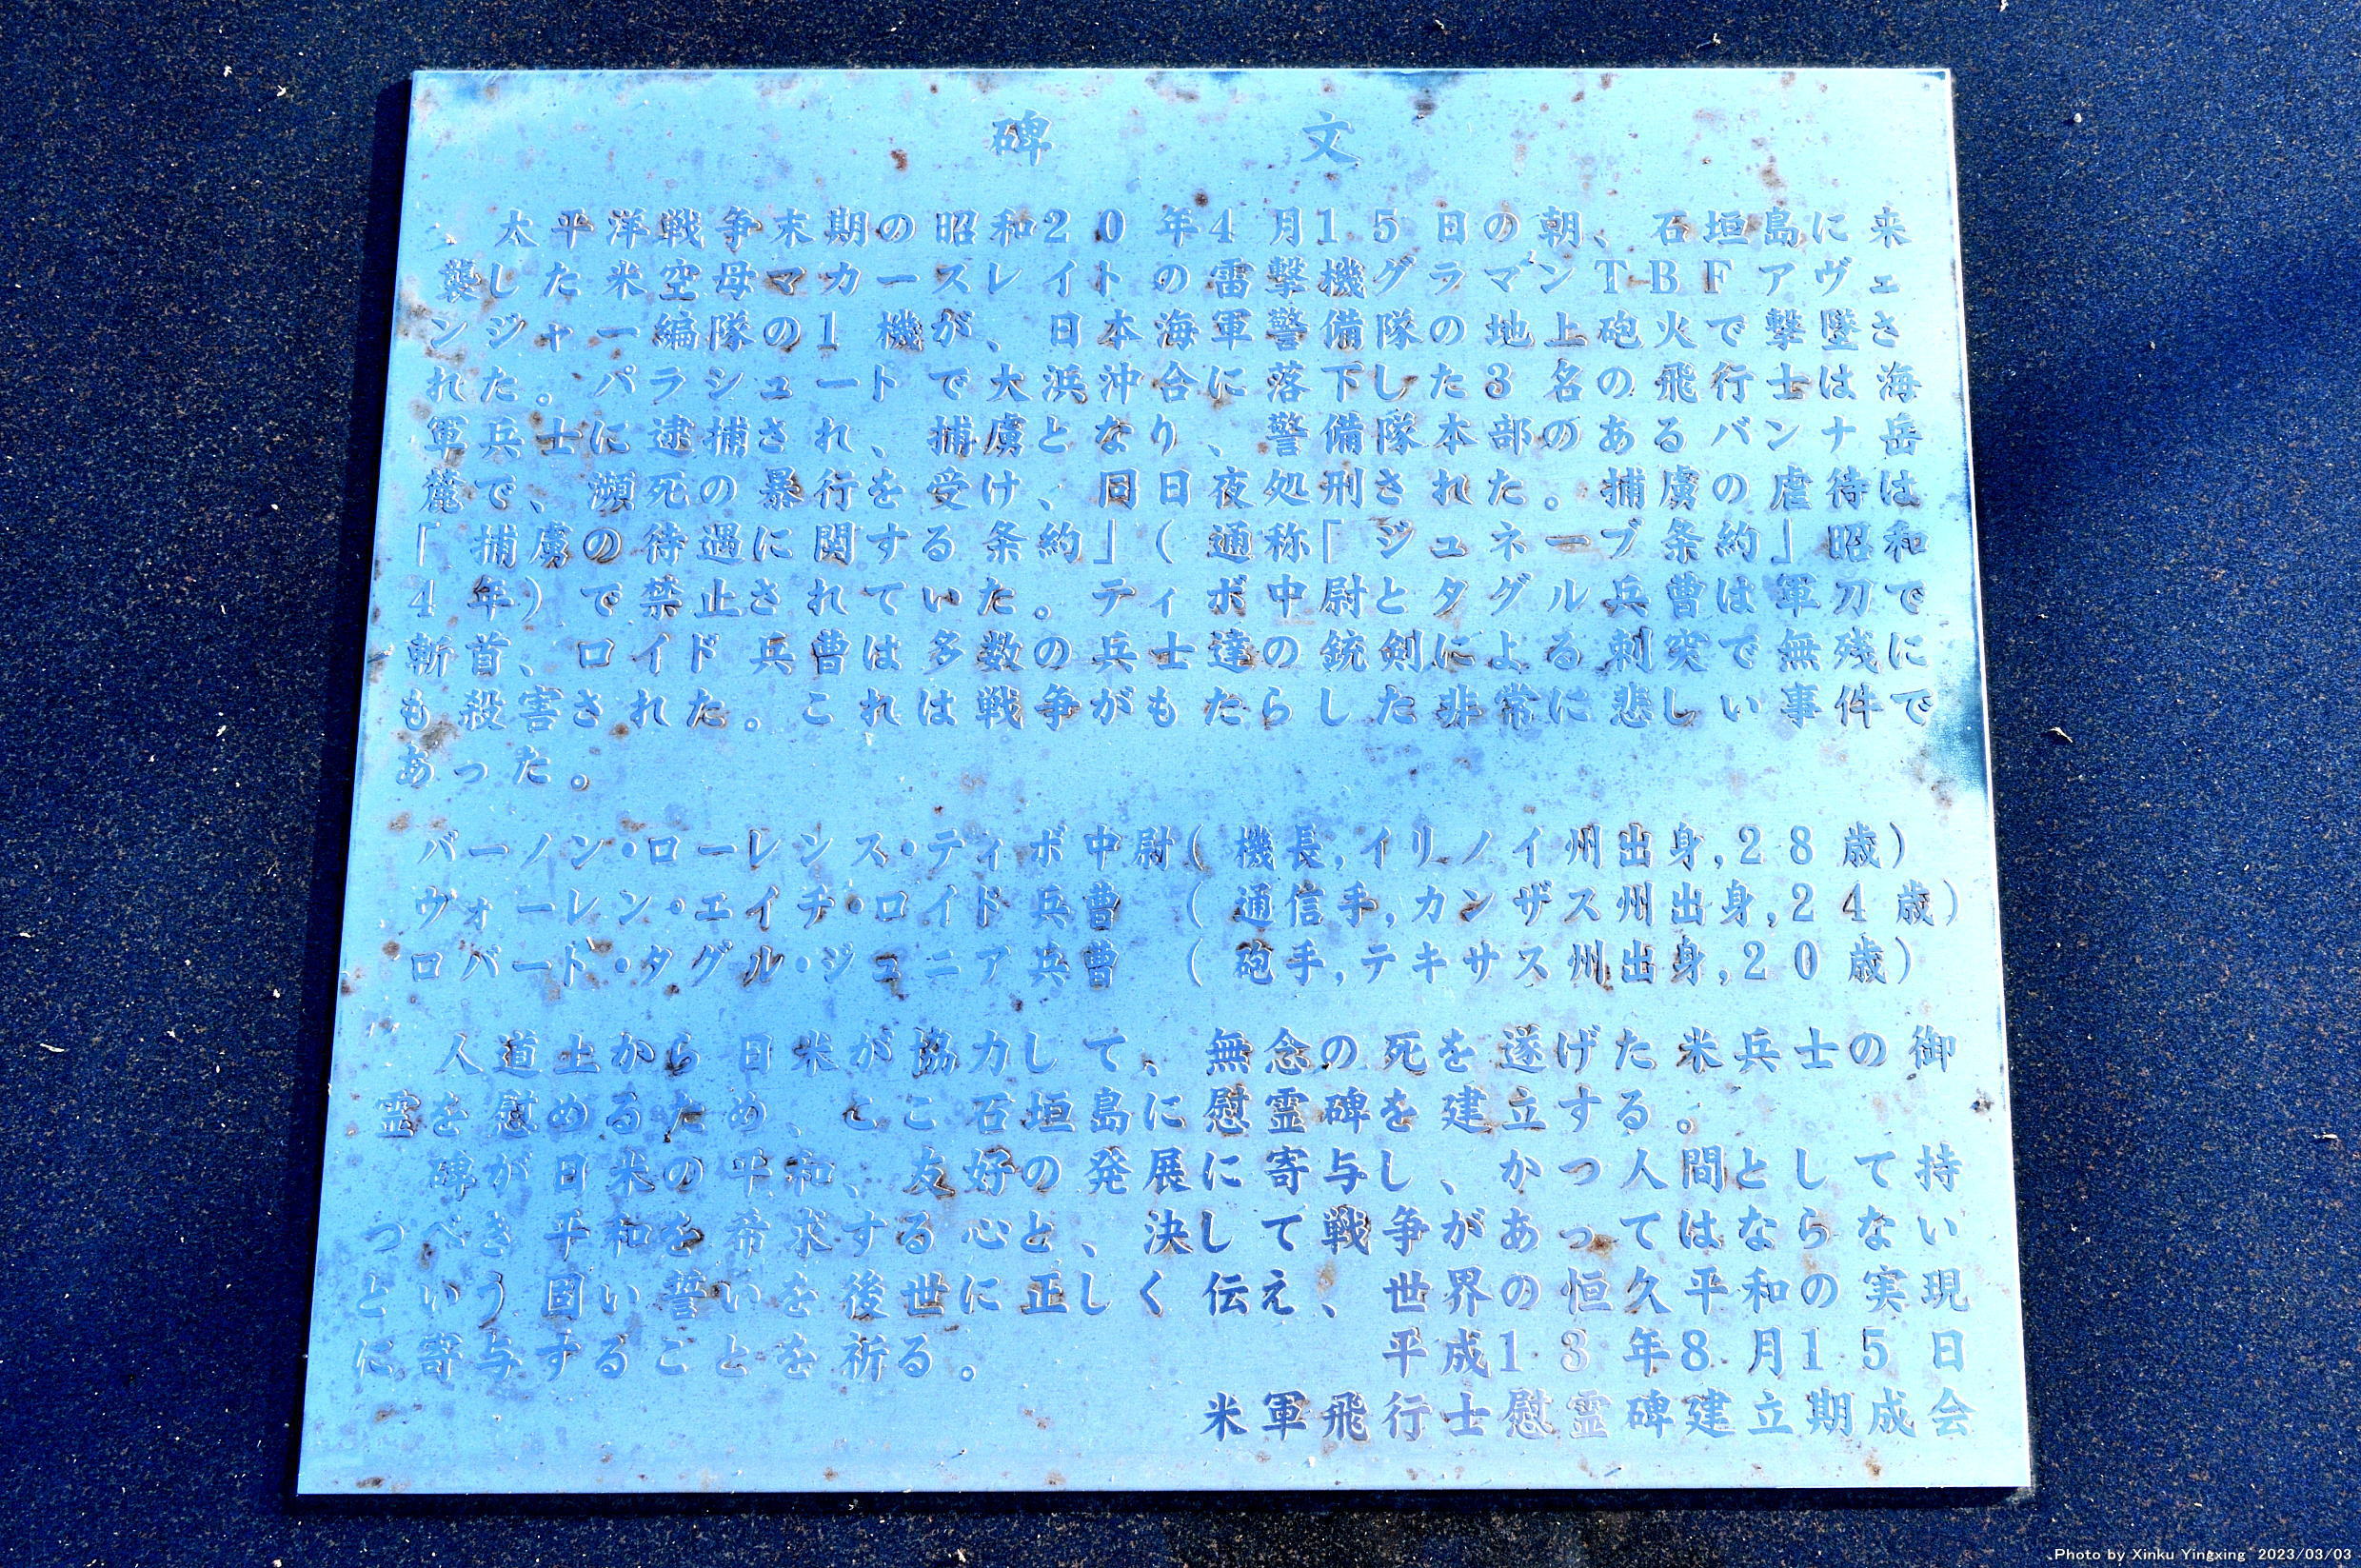 碑　文
太平洋戦争末期の昭和20年4月15日の朝、石垣島に来
襲した米空母マカースレイトの雷撃機グラマンTBFアヴェ
ンジャー編隊の1機が、日本海軍警備隊の地上砲火で撃墜さ
れた。パラシュートで大浜沖合に落下した3名の飛行士は海
軍兵士に逮捕され、捕虜となり、警備隊本部のあるバンナ岳
麓で、瀕死の暴行を受け、同日夜処刑された。捕虜の虐待は
「捕虜の待遇に関する条約」(通称「ジュネーブ条約」昭和
4年)で禁止されていた。ティボ中尉とタグル兵曹は軍刀で
斬首、ロイド兵曹は多数の兵士達の銃剣による刺突で無残に
も殺害された。これは戦争がもたらした非常に悲しい事件で
あった。
バーノン・ローレンス・ティボ中尉(機長,イリノイ州出身,28歳)
ウォーレン・エイチ・ロイド兵曹 (通信手,カンザス州出身,24歳)
ロバート・タグル・ジュニア兵曹 (砲手,テキサス州出身,20歳)
人道上から日米が協力して、無念の死を遂げた米兵士の御
霊を慰めるため、ここ石垣島に慰霊碑を建立する。
碑が日米の平和、友好の発展に寄与し、かつ人間として持
つべき平和を希求する心と、決して戦争があってはならない
という固い誓いを後世に正しく伝え、世界の恒久平和の実現
に寄与することを祈る。 平成13年8月15日
米軍飛行士慰霊碑建立期成会
Photo by Xinku Yingxing 2023/03/03